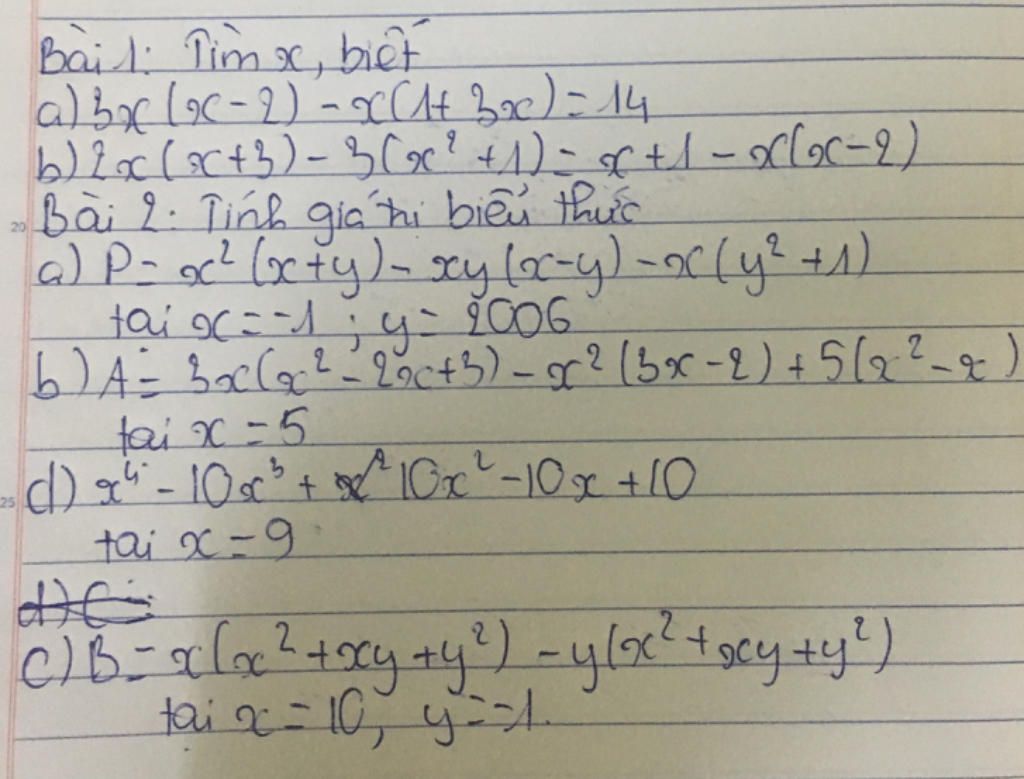 Bài 1: Tìm x, biết
a) 3x(x-2) - x(1+3x) = 14
b) 2x(x+3) - 3(x² +1) = x+1 - x(x-2)
20
Bài 2: Tính giá trị biểu thức
a) P = x² (x+y) - xy(x-y) - x(y² +1)
tại x = -1 ; y = 2006
b) A = 3x(x² - 2x+3) - x² (3x-2) + 5(x² - x)
tại x = 5
25
d) x⁴ - 10x³ + 10x² - 10x + 10
tại x = 9
d) C =
c) B = x(x² + xy + y²) - y(x² + xy + y²)
tại x = 10, y = -1.